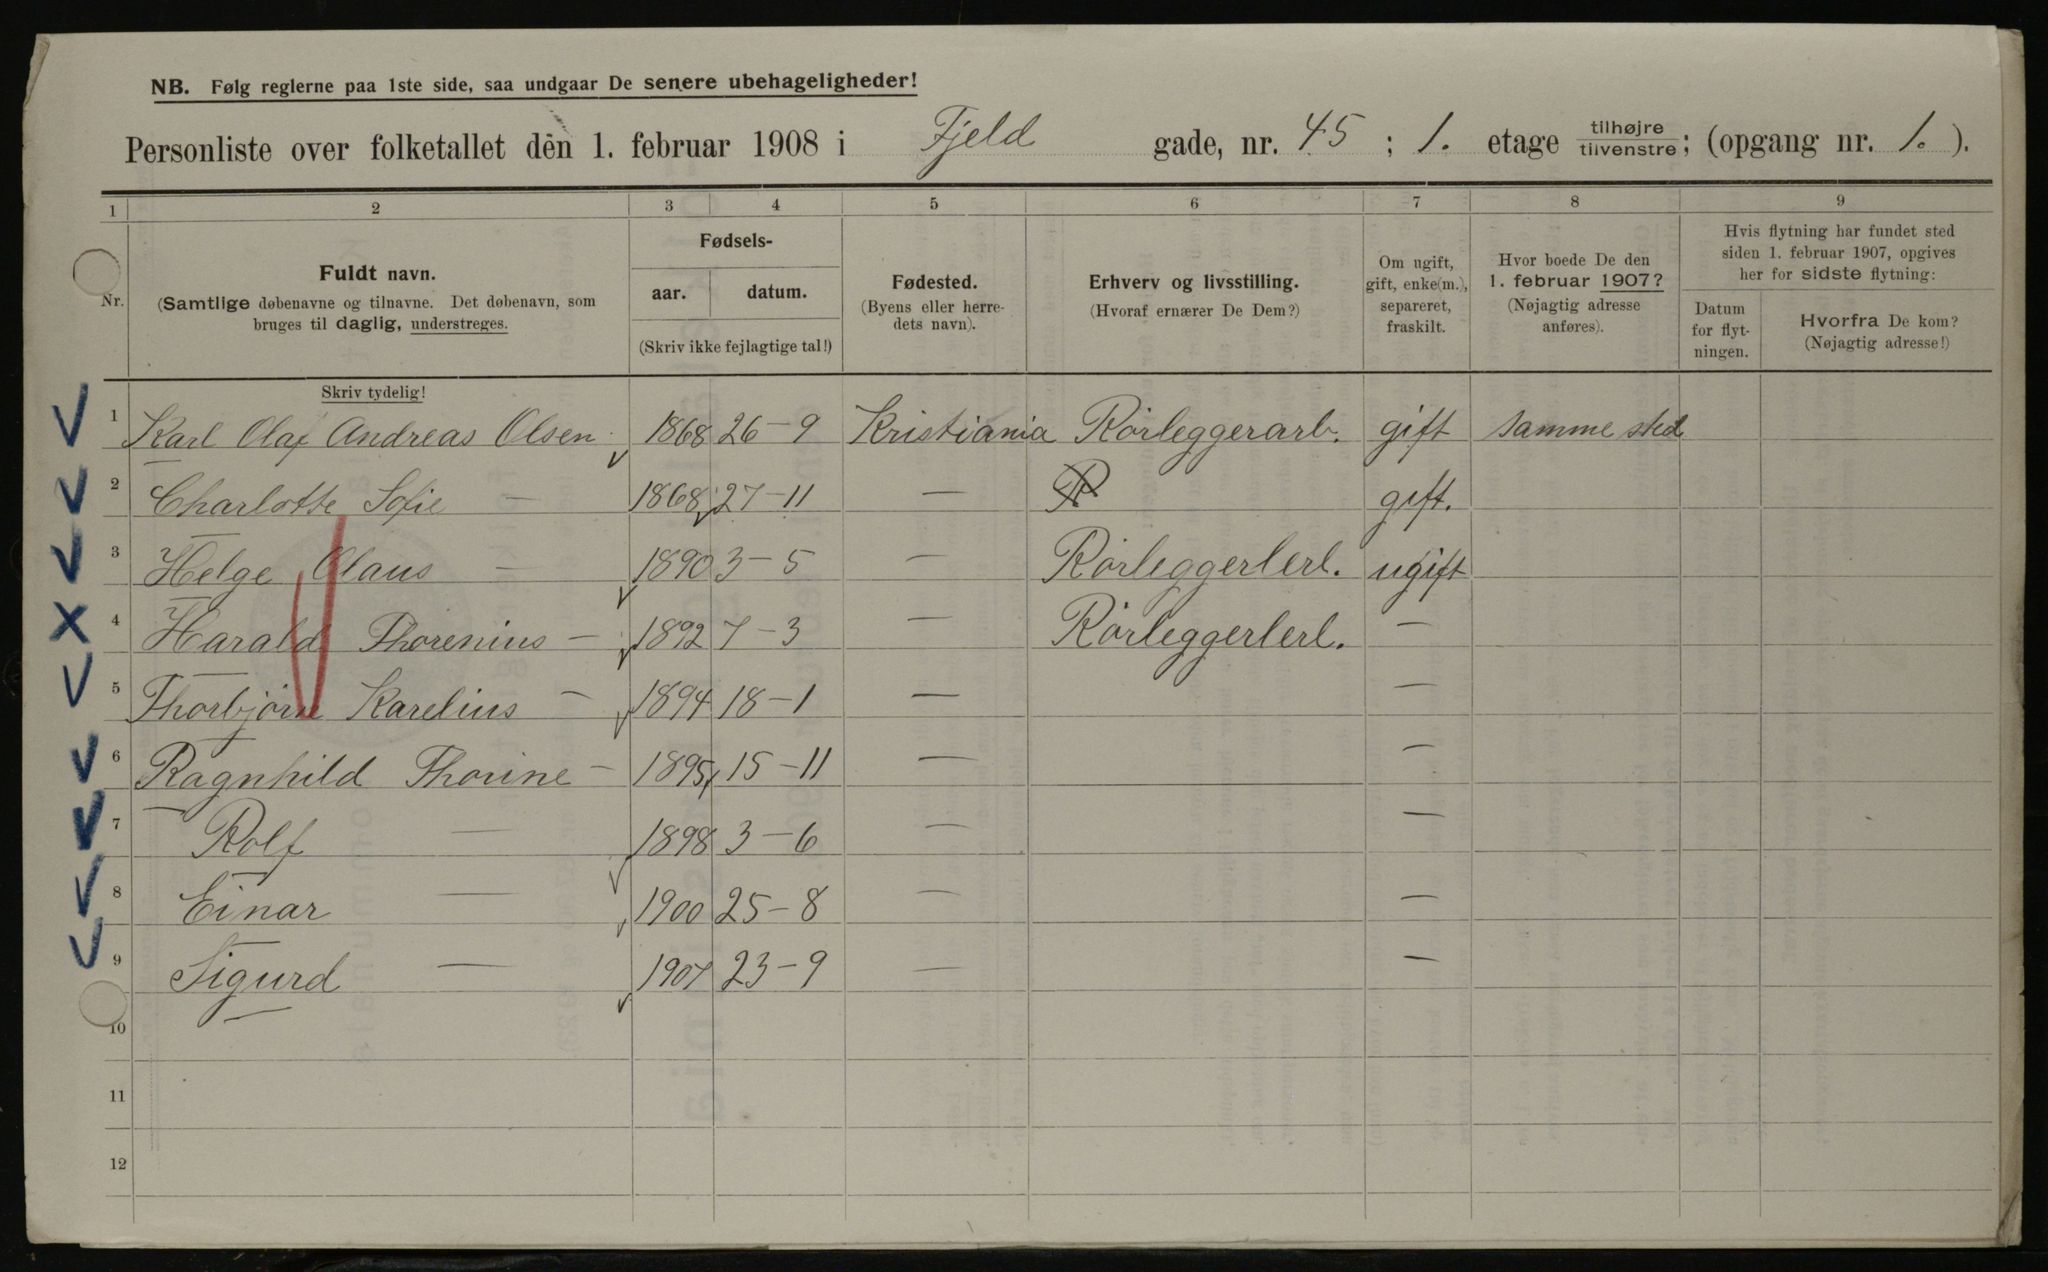 NB. Følg reglerne paa 1ste side, saa undgaar De senere ubehageligheder!
Personliste over folketallet den 1. februar 1908 i Fjeld gade, nr. 45 ; 1. etage tilhøjre tilvenstre ; (opgang nr. 1. ).
1 2 3 4 5 6 7 8 9
Nr.
Fuldt navn.
(Samtlige døbenavne og tilnavne. Det døbenavn, som
bruges til daglig, understreges.
Fødsels-
aar. datum.
(Skriv ikke fejlagtige tal!)
Fødested.
(Byens eller herre-
dets navn).
Erhverv og livsstilling.
(Hvoraf ernærer De Dem?)
Om ugift,
gift, enke(m.),
separeret,
fraskilt.
Hvor boede De den
1. februar 1907?
(Nøjagtig adresse
anføres).
Hvis flytning har fundet sted
siden 1. februar 1907, opgives
her for sidste flytning:
Datum
for flyt-
ningen.
Hvorfra De kom?
(Nøjagtig adresse!)
Skriv tydelig!
1 Karl Olaf Andreas Olsen 1868 26-9 Kristiania Rørleggerarb. gift samme sted
2 Charlotte Sofie — 1868 27-11 — R gift.
3 Helge Olaus — 1890 3-5 — Rørleggerlerl. ugift
4 Harald Thorenius — 1892 7-3 — Rørleggerlerl. —
5 Thorbjørn Karelius — 1894 18-1 — —
6 Ragnhild Thorine — 1895 15-11 — —
7 Rolf — 1898 3-6 — —
8 Einar — 1900 25-8 — —
9 Sigurd — 1907 23-9 — —
10
11
12